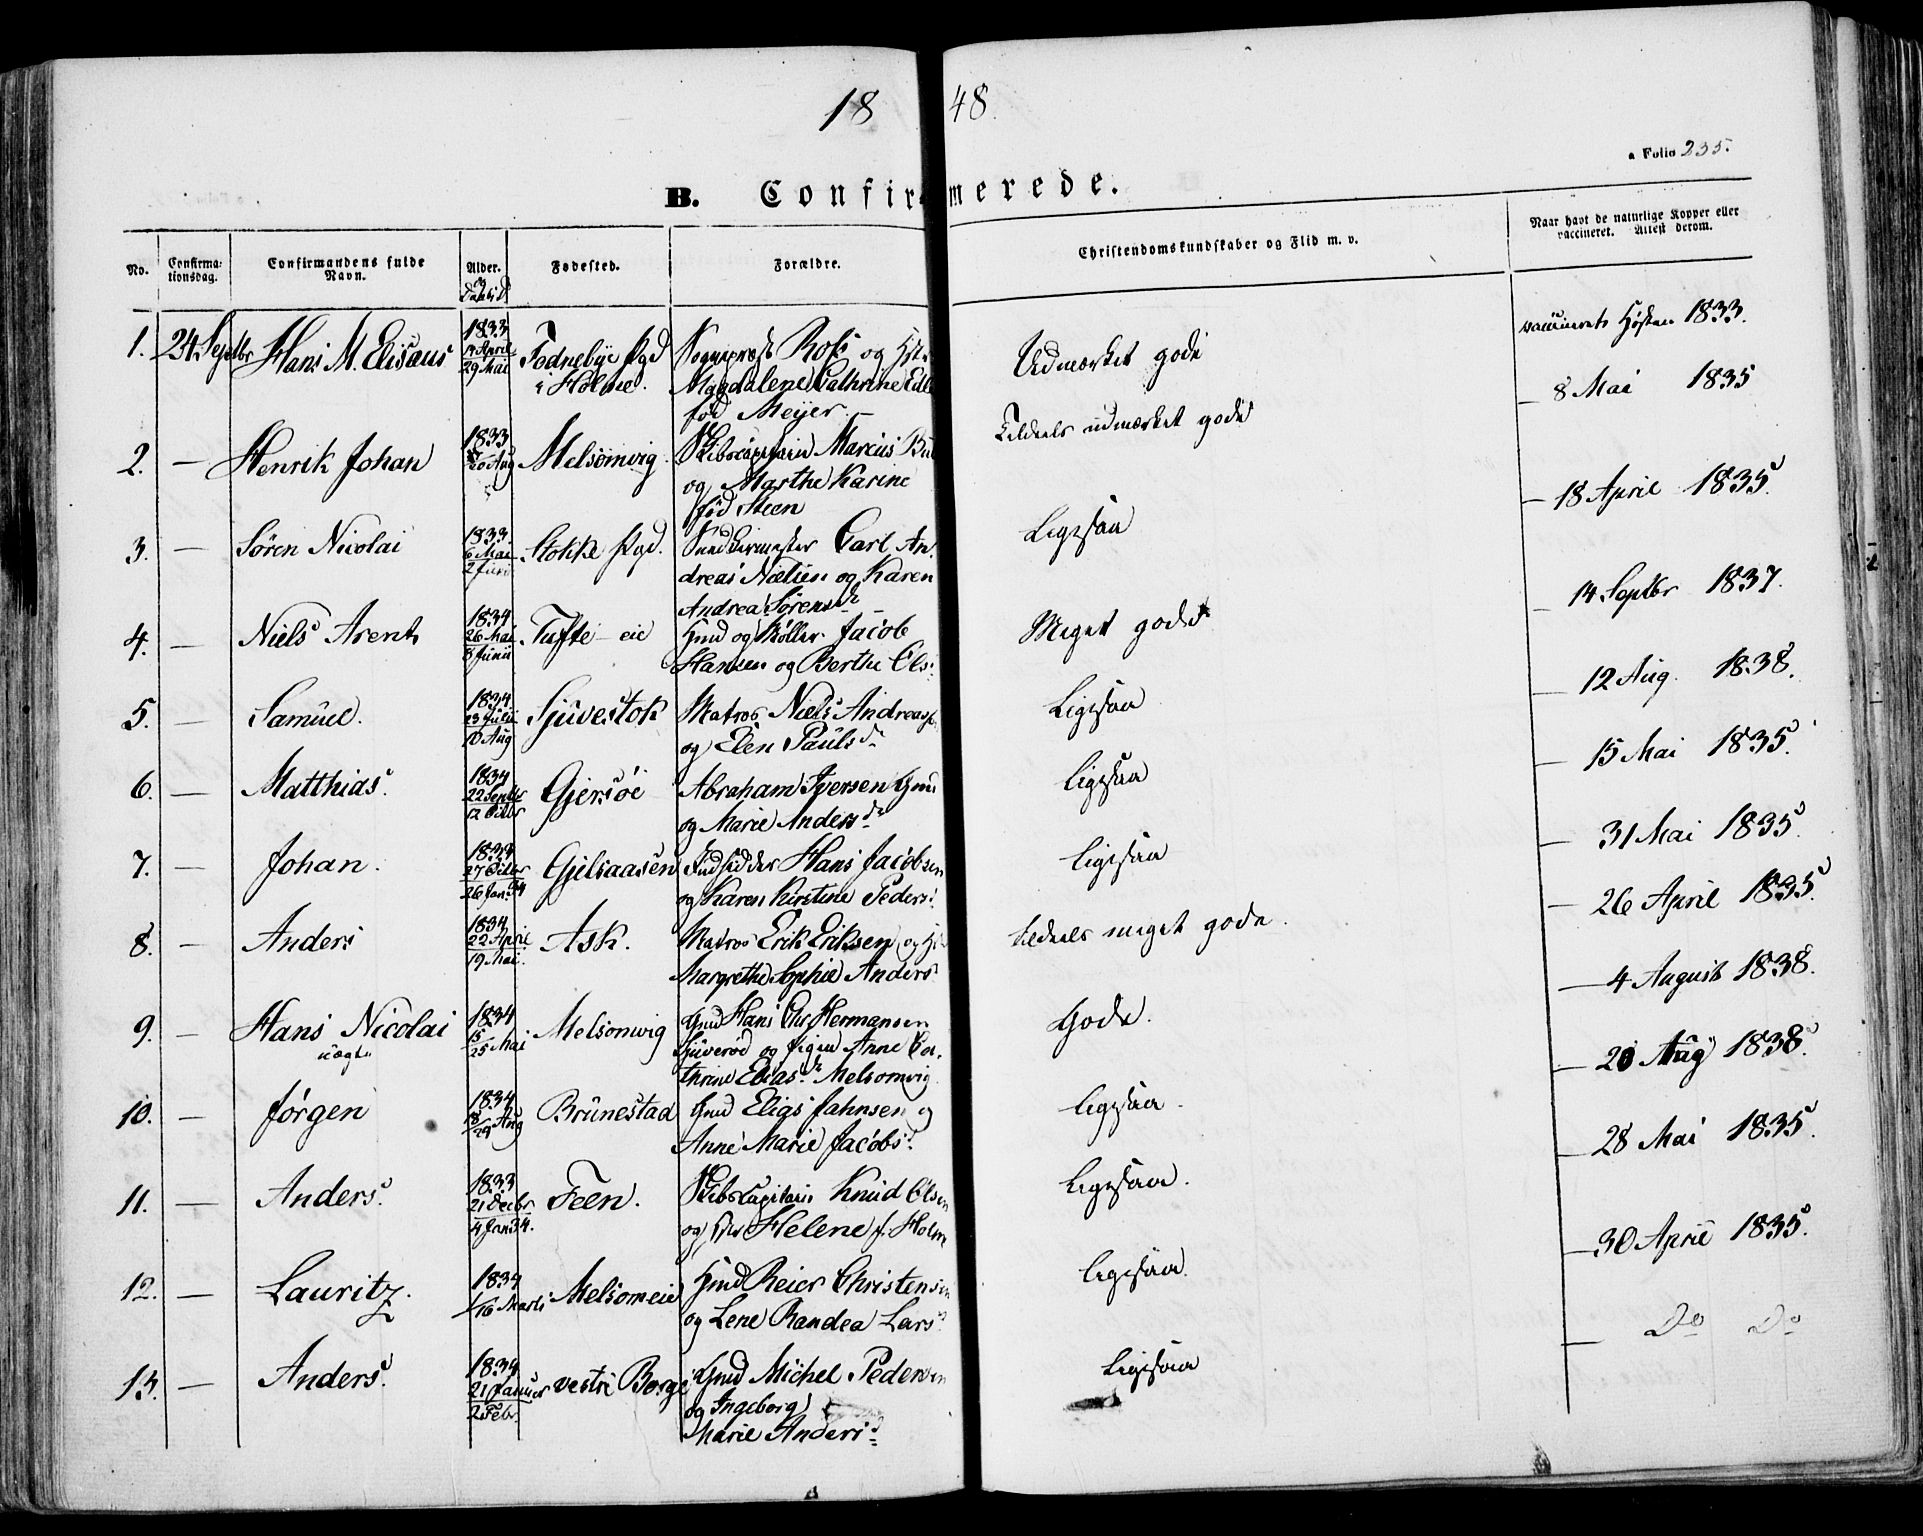 1848.
a Folio 235.
B. Confirmerede.
No.
Confirma-
tionsdag.
Confirmandens fulde
Navn.
Alder.
og
Daab: D
Fødested.
Forældre.
Christendomskundskaber og Flid m. v.
Naar havt de naturlige Kopper eller
vaccineret. Attest derom.
1. 24 Septbr Hans M. Elisæus
1833
14 April
29 Mai
Fodnebye Pgd
i Holme.
Sogneprest Ross og Hst.
Magdalene Cathrine Edle
fød Meyer.
Udmærket gode
vaccineret Høsten 1833.
2. — Henrik Johan
1833
20 Aug
Melsomvig.
Skibscapitain Marcus Bu
og Marthe Karine
fød Steen
Tildeels udmærket gode
— 8 Mai 1835
3. — Søren Nicolai
1833.
6 Mai
2 Juni
Stokke Pgd.
Carl An-
dreas Nielsen og Karen
Andrea Sørensd.
Ligesaa
— 18 April 1835.
4. — Niels Arent
1834
26 Mai
8 Junii
Tufte-eie
Gmd og Møller Jacob
Hansen og Berthe Ols:
Meget gode
— 14 Septbr 1837.
5. — Samuel.
1834
23 Julii
10 Aug
Sjuvestok
Matros Niels Andreas
og Elen Paulsd.
Ligesaa
— 12 Aug. 1838.
6. — Matthias.
1834
22 Septbr
12 Octbr
Gjersøe
Abraham Iversen Gmd
og Marie Andersd.
Ligesaa
— 15 Mai 1835.
7. — Johan.
1833
27 Octbr
26 Jan. 34
Gjelsaasen
Indsidder Hans Jacobsen
og Karen Kirstine Peders:
Ligesaa
— 31 Mai 1835.
8. — Anders
1834
22 April
19 Mai.
Ask.
Matros Erik Eriksen og H
Margrethe Sophie Anders
Tildeels meget gode.
— 26 April 1835.
9. — Hans Nicolai
uægte
1834
15
25 Mai
Melsomvig
Gmd Hans Chr. Hermansen
Sjuverød og Pigen Anne Ca-
thrine Eliasd. Melsomvig
Gode.
— 4 August 1838.
10. — Jørgen
1834
18
29 Aug
Brunestad
Gmd Elias Jahnsen og
Anne Marie Jacobs:
Ligesaa.
— 20 Aug 1838.
11. — Anders.
1833
21 Decbr
4 Jan 34.
Feen.
Skibscapitain Knud Olsen
og Helene f. Holm
Ligesaa.
— 28 Mai 1835.
12. — Lauritz.
1834
1/16 Marts
Melsomeie
Gmd Reier Christensen
og Lene Randea Lars:
Ligesaa.
— 30 April 1835.
13. — Anders.
1834
21 Januar
2 Febr.
vestre Borge
Gmd Michel Pedersen
og Ingeborg
Marie Andersd
Ligesaa
— Do Do